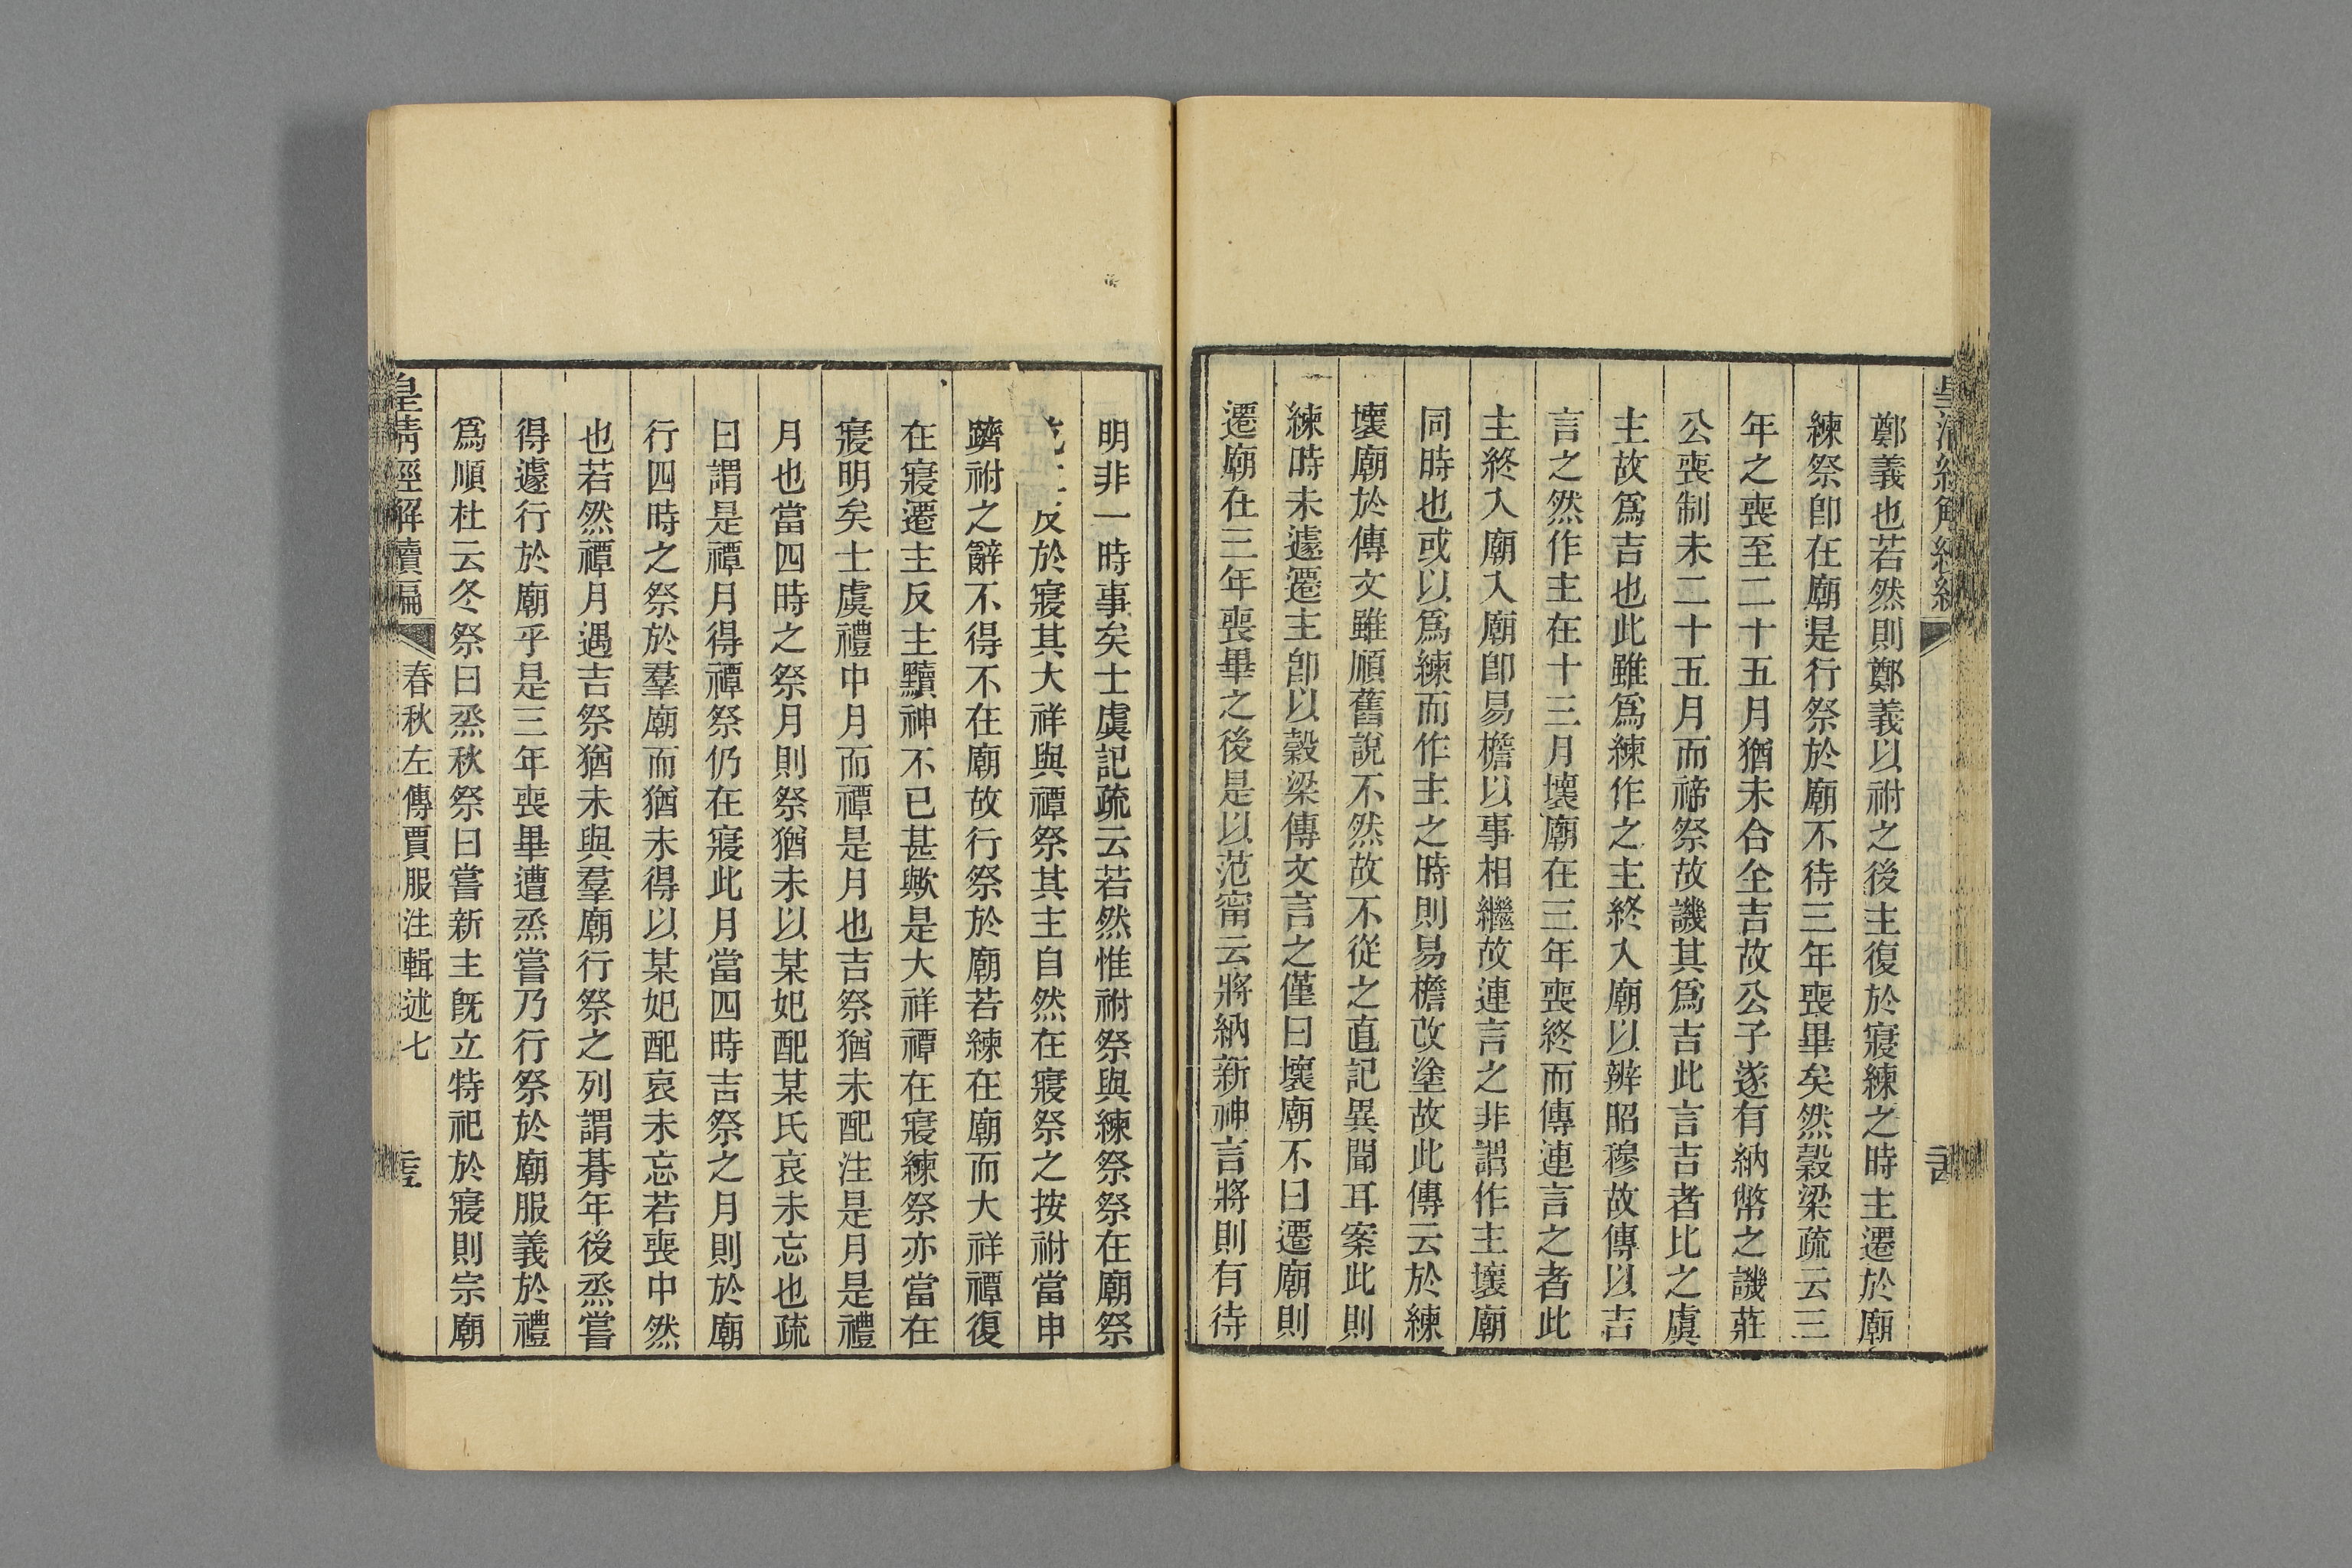 鄭義也若然則鄭義以祔之後主復於寢練之時主遷於廟
練祭卽在廟是行祭於廟不待三年喪畢矣然穀梁疏云三
年之喪至二十五月猶未合全吉故公子遂有納幣之譏莊
公喪制未二十五月而禘祭故譏其爲吉此言吉者比之虞
主故爲吉也此雖爲練作之主終入廟以辨昭穆故傳以吉
言之然作主在十三月壞廟在三年喪終而傳連言之者此
主終入廟入廟卽易檐以事相繼故連言之非謂作主壞廟
同時也或以爲練而作主之時則易檐改塗故此傳云於練
壞廟於傳文雖順舊說不然故不從之直記異聞耳案此則
練時未遽遷主卽以穀梁傳文言之僅曰壞廟不曰遷廟則
遷廟在三年喪畢之後是以范甯云將納新神言將則有待
明非一時事矣士虞記疏云若然惟祔祭與練祭祭在廟祭
反於寢其大祥與禫祭其主自然在寢祭之按祔當申
躋祔之辭不得不在廟故行祭於廟若練在廟而大祥禫復
在寢遷主反主黷神不已甚歟是大祥禫在寢練祭亦當在
寢明矣士虞禮中月而禫是月也吉祭猶未配注是月是禫
月也當四時之祭月則祭猶未以某妃配某氏哀未忘也疏
曰謂是禫月得禫祭仍在寢此月當四時吉祭之月則於廟
行四時之祭於羣廟而猶未得以某妃配哀未忘若喪中然
也若然禫月遇吉祭猶未與羣廟行祭之列謂朞年後烝嘗
得遽行於廟乎是三年喪畢遭烝嘗乃行祭於廟服義於禮
爲順杜云冬祭曰烝秋祭曰嘗新主旣立特祀於寢則宗廟
皇淸經解續編
春秋左傳賈服注輯述七